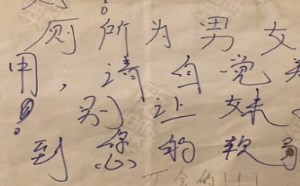 厕所为男女
用，请自觉关
！别让妹
到您的软